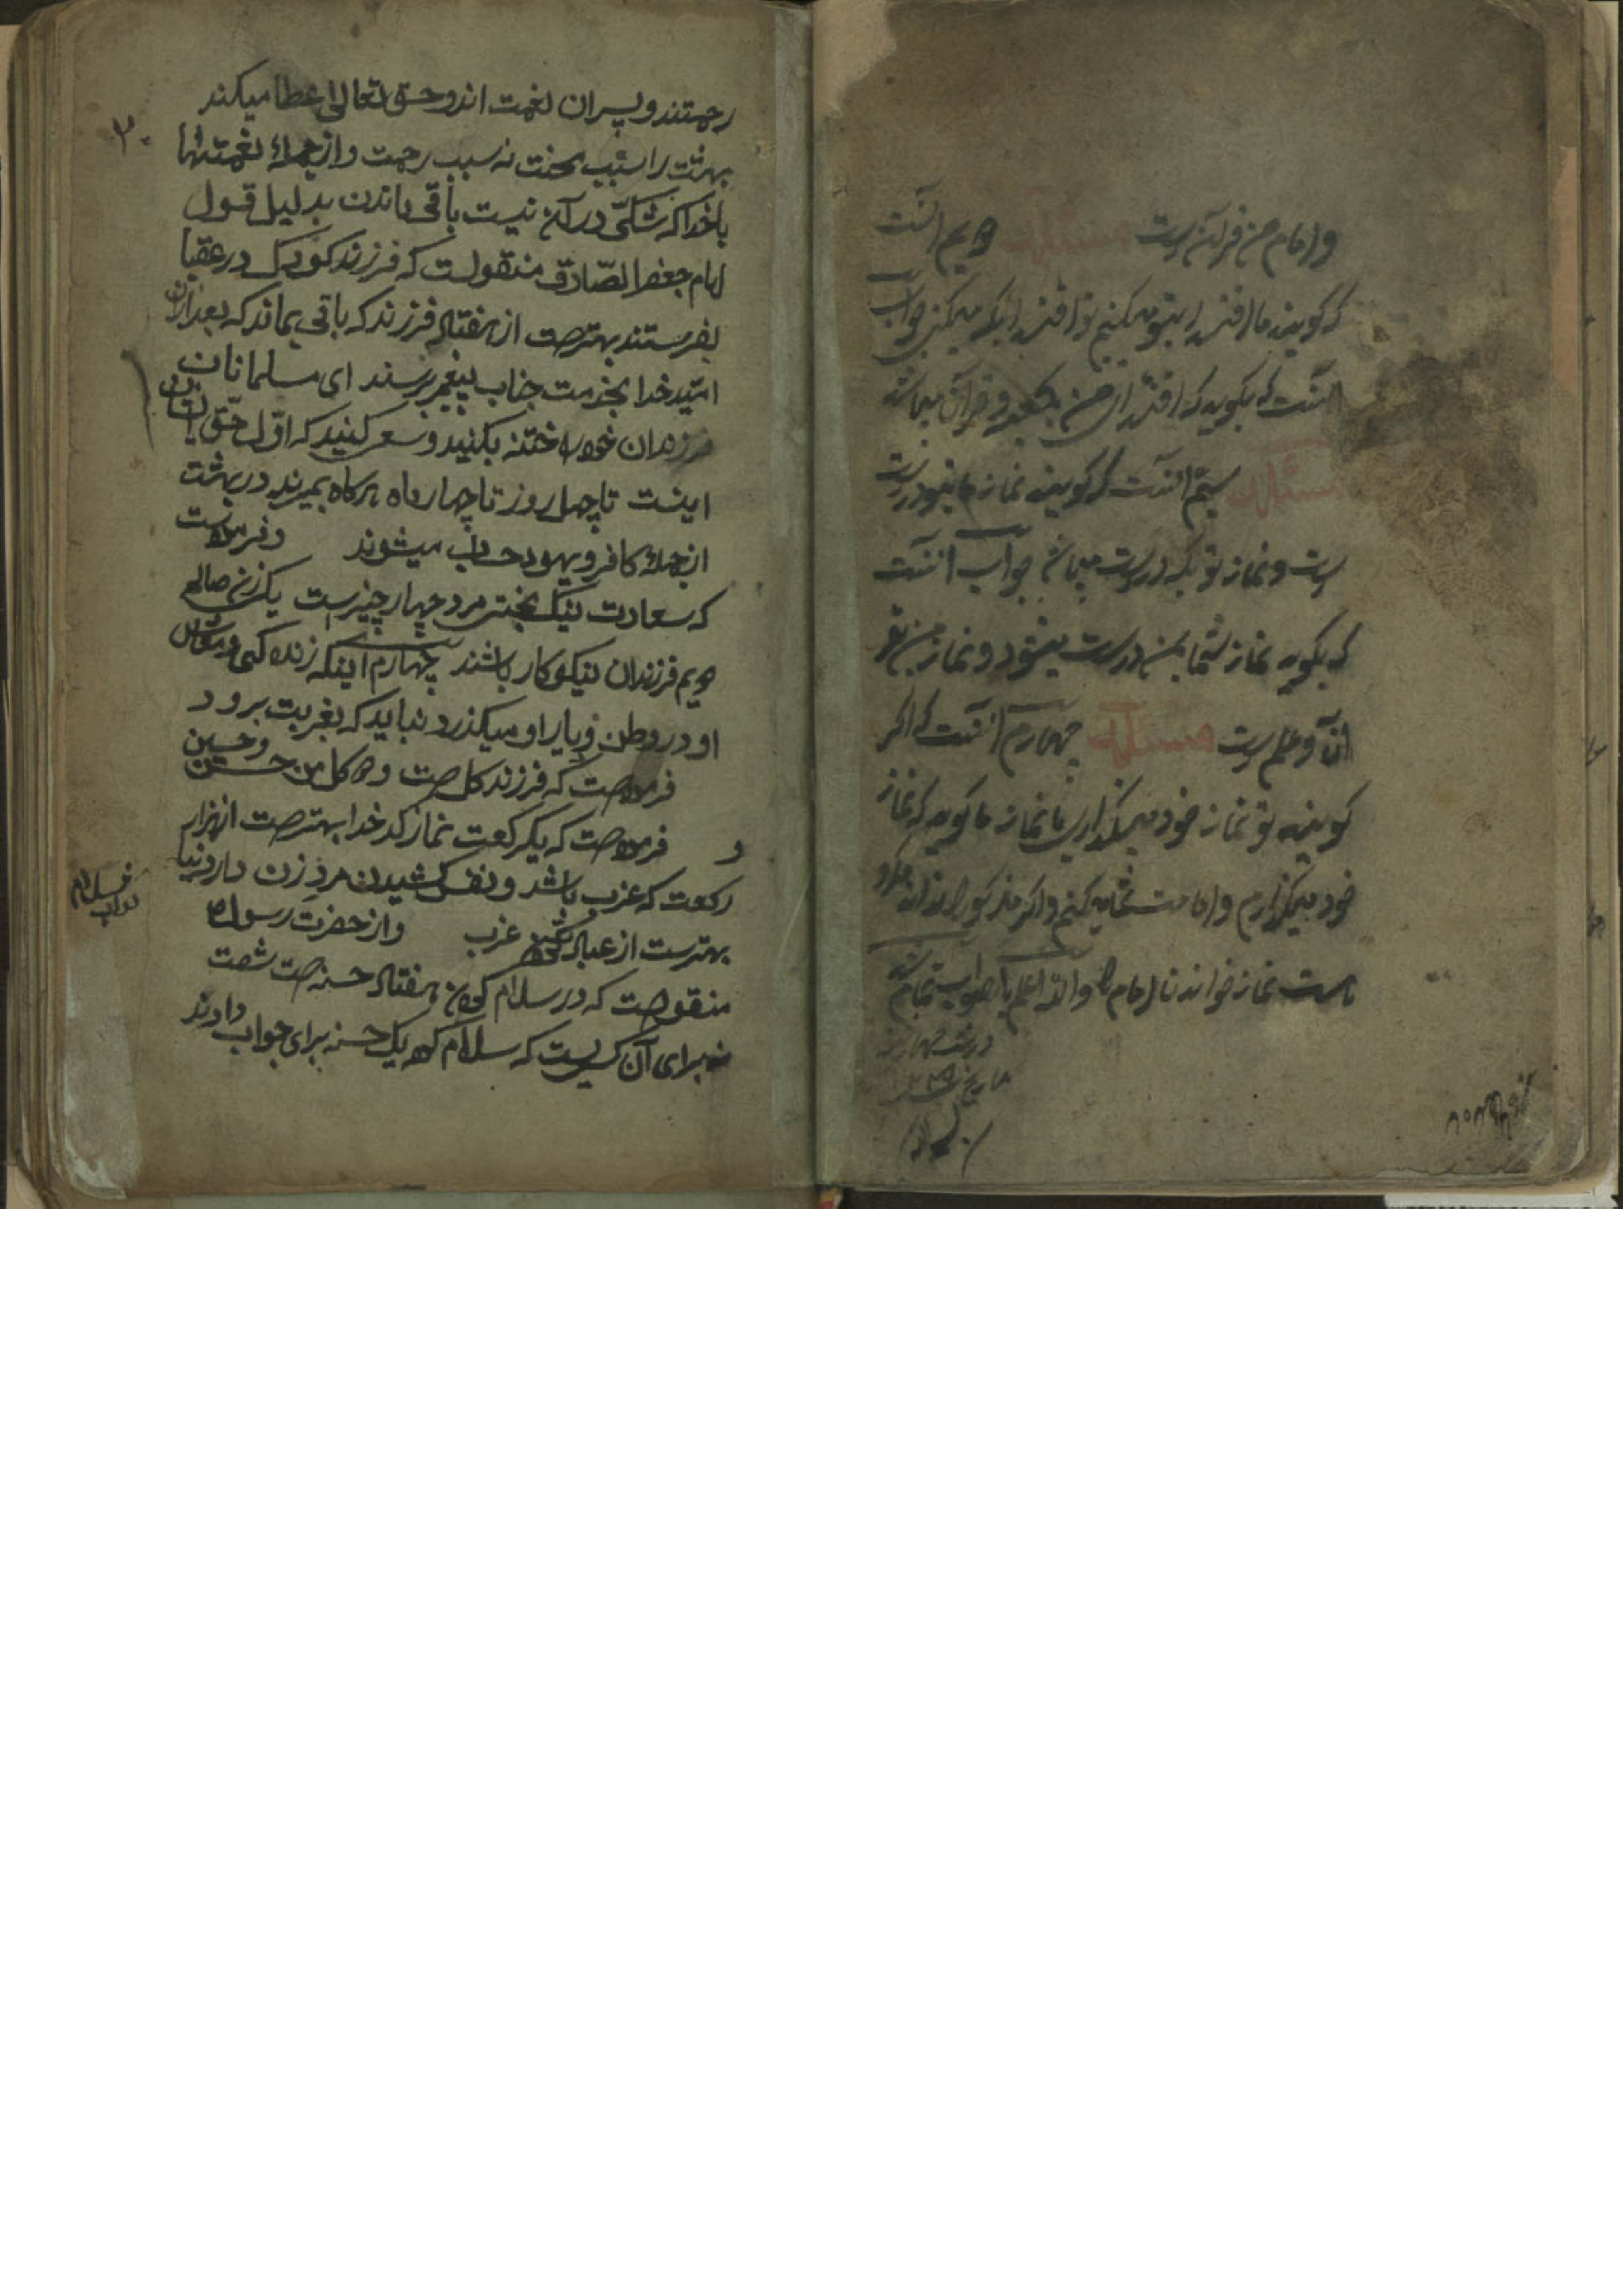 و امام من قرآن است مسئله دویم آنست
که گویند ما اقتدا بتو میکنیم تو اقتدا بکه میکنی جواب
آنست که بگوید که اقتدای من بکعبه و قرآن میباشد
مسئله سیّم آنست که گویند نماز ما بتو درست
است و نماز تو بکه درست میباشد جواب آنست
که بگوید نماز شما بمن درست میشود و نماز من بقر
آن و علم است مسئله چهارم آنست که اگر
گویند تو نماز خود میگذاری یا نماز ما گوید که نماز
خود میگذارم و امامت شما میکنم و اگر مذکور را نداند
است نماز خواندن امام والله اعلم بالصواب تمام شد
رحمتند و پسران نعمت اند و حق تعالی عطا میکند
۲۰
بهشت را بسبب محنت نه سبب رحمت و از جمله نعمتها
باخدا که شکّی در آن نیست باقی ماندن بدلیل قول
امام جعفر الصّادق منقولست که فرزند کودک در عقبا
بفرستند بهترست از هفتاد فرزند که باقی بماند که بعد از آن
امّید خدا بخدمت جناب پیغمبر برسند ای مسلمانان
فرزندان خود را ختنه بکنید و سعی کنید که اوّل حقّ
اینست تا چهل روز تا چهار ماه هرگاه بمیرند در بهشت
از جمله کافر و یهود حساب میشوند و فرموده است
که سعادت نیک بختی مرد چهار چیز است یکی زن صالح
دویم فرزندان نیکوکار باشند چهارم اینکه زنده کی و معاش
او در وطن و یار او میگذرد نباید که بغربت برود
فرموده است که فرزند گل است و دو گل من حسن و حسین
و فرموده است که یکرکعت نماز کدخدا بهتر است از هزار
رکعت که عزب باشد و نفس کشیدن مرد زن دار دنیا
بهتر است از عبادت عزب و از حضرت رسول ص
منقولست که در سلام کردن هفتاد حسنه است شصت
نه برای آن کسیست که سلام کرد یک حسنه برای جواب دادند